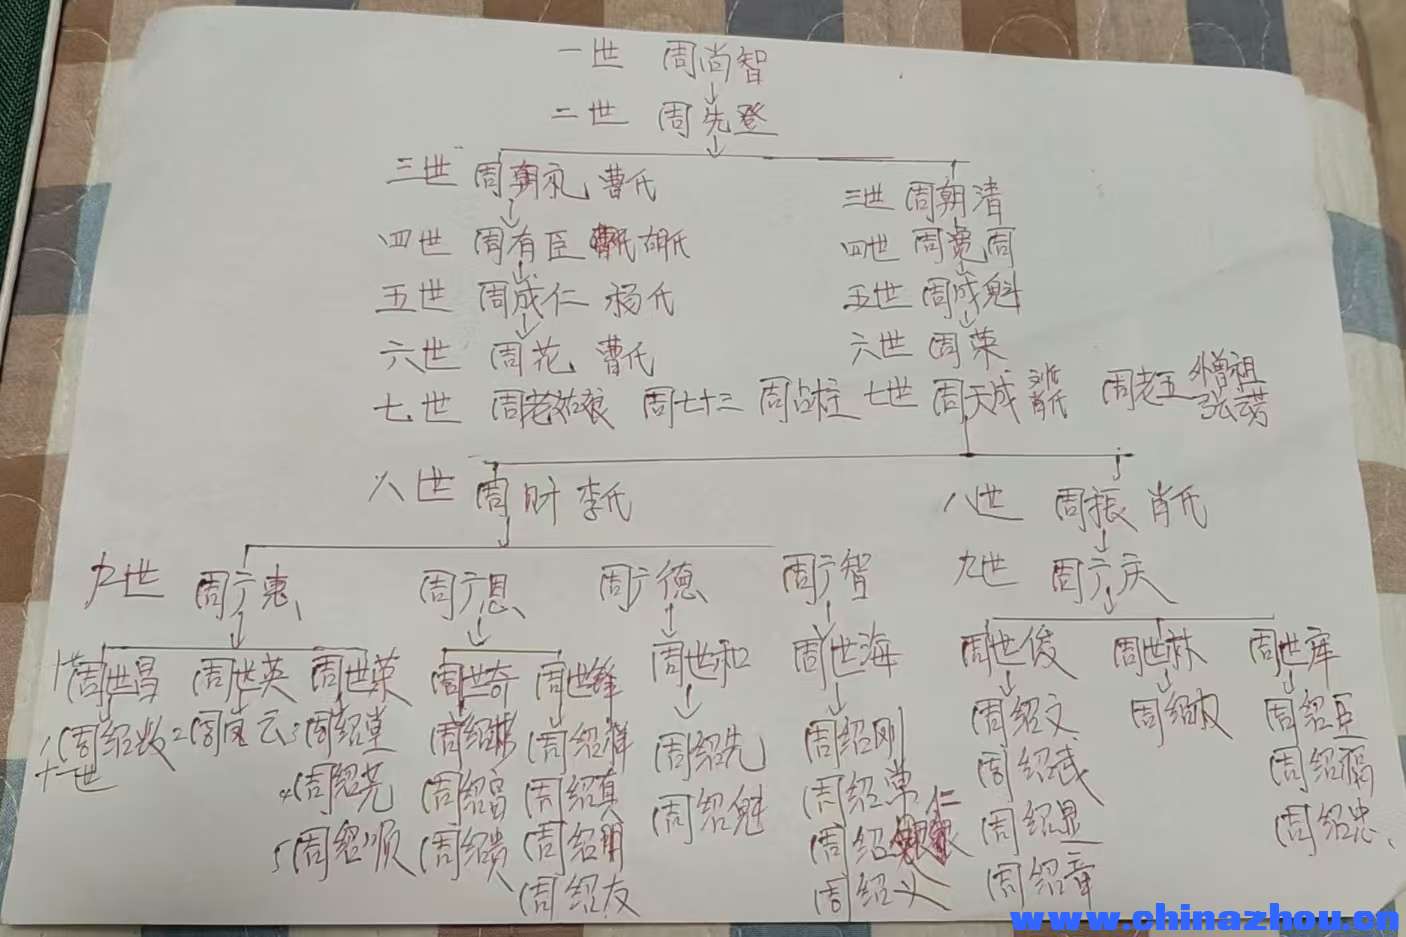 一世 周尚智
二世 周先登
三世 周朝礼 曹氏
三世 周朝清
四世 周有臣 胡氏
四世 周 周
五世 周成仁 杨氏
五世 周成魁
六世 周花 曹氏
六世 周荣
七世 周老 周七十三 周占柱
七世 周天成 肖氏 周老五 外曾祖 张云芳
八世 周财 李氏
八世 周振 肖氏
九世 周广惠 周广恩 周广德 周广智
九世 周广庆
十世 周世昌 周世英 周世荣 周世奇 周世锋 周世和 周世海 周世俊 周世林 周世库
十一世 周绍 2周宝云 3周绍堂 周绍 周绍祥 周绍先 周绍刚 周绍文 周绍权 周绍臣
4周绍光 周绍富 周绍真 周绍魁 周绍常 周绍武 周绍福
5周绍顺 周绍贵 周绍明 周绍仁 周绍显 周绍忠
周绍友 周绍义 周绍章
www.chinazhou.cn